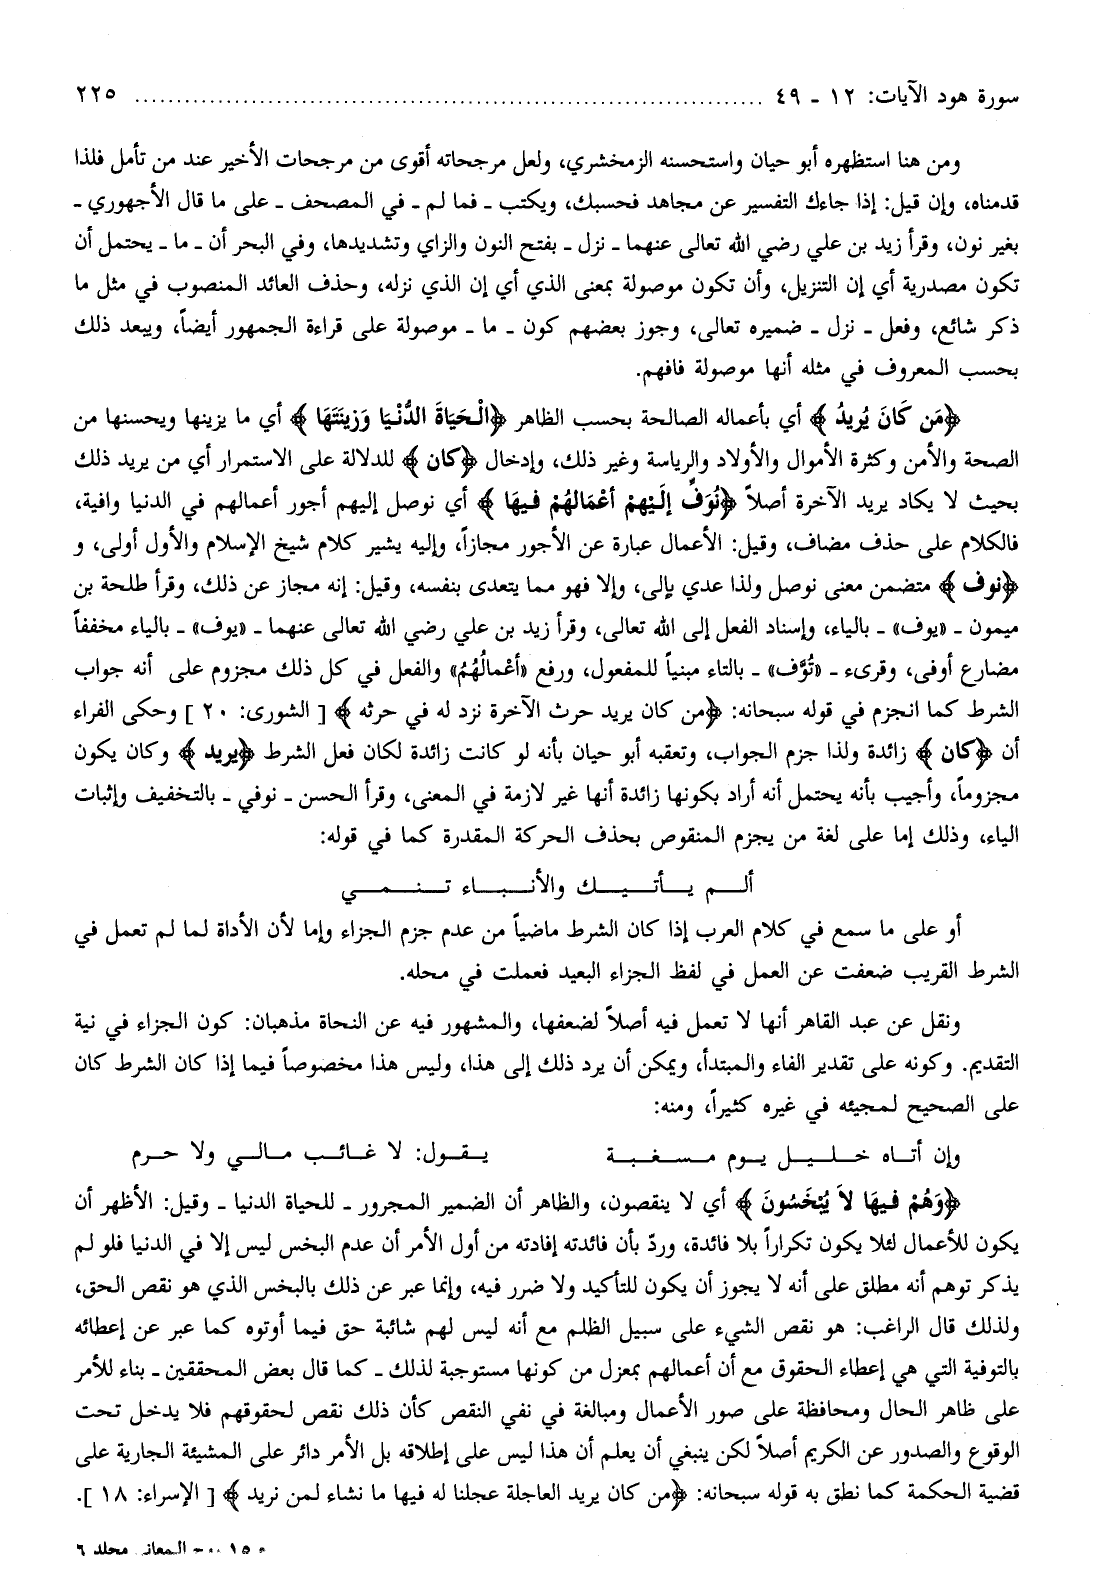 سورة هود الآيات: ١٢ ـ ٤٩ ........................................................................... ٢٢٥
ومن هنا استظهره أبو حيان واستحسنه الزمخشري، ولعل مرجحاته أقوى من مرجحات الأخير عند من تأمل فلذا
قدمناه، وإن قيل: إذا جاءك التفسير عن مجاهد فحسبك، ويكتب ـ فما لم ـ في المصحف ـ على ما قال الأجهوري ـ
بغير نون، وقرأ زيد بن علي رضي الله تعالى عنهما ـ نزل ـ بفتح النون والزاي وتشديدها، وفي البحر أن ـ ما ـ يحتمل أن
تكون مصدرية أي إن التنزيل، وأن تكون موصولة بمعنى الذي أي إن الذي نزله، وحذف العائد المنصوب في مثل ما
ذكر شائع، وفعل ـ نزل ـ ضميره تعالى، وجوز بعضهم كون ـ ما ـ موصولة على قراءة الجمهور أيضاً، ويبعد ذلك
بحسب المعروف في مثله أنها موصولة فافهم.
﴿مَن كَانَ يُرِيدُ﴾ أي بأعماله الصالحة بحسب الظاهر ﴿الْحَيَاةَ الدُّنْيَا وَزِينَتَهَا﴾ أي ما يزينها ويحسنها من
الصحة والأمن وكثرة الأموال والأولاد والرياسة وغير ذلك، وإدخال ﴿كان﴾ للدلالة على الاستمرار أي من يريد ذلك
بحيث لا يكاد يريد الآخرة أصلاً ﴿نُوَفِّ إِلَيْهِمْ أَعْمَالَهُمْ فِيهَا﴾ أي نوصل إليهم أجور أعمالهم في الدنيا وافية،
فالكلام على حذف مضاف، وقيل: الأعمال عبارة عن الأجور مجازاً، وإليه يشير كلام شيخ الإسلام والأول أولى، و
﴿نوف﴾ متضمن معنى نوصل ولذا عدي بإلى، وإلا فهو مما يتعدى بنفسه، وقيل: إنه مجاز عن ذلك، وقرأ طلحة بن
ميمون ـ «يوف» ـ بالياء، وإسناد الفعل إلى الله تعالى، وقرأ زيد بن علي رضي الله تعالى عنهما ـ «يوف» ـ بالياء مخففاً
مضارع أوفى، وقرىء ـ «تُوَّف» ـ بالتاء مبنياً للمفعول، ورفع «أعْمالُهُمْ» والفعل في كل ذلك مجزوم على أنه جواب
الشرط كما انجزم في قوله سبحانه: ﴿من كان يريد حرث الآخرة نزد له في حرثه﴾ [ الشورى: ٢٠ ] وحكى الفراء
أن ﴿كان﴾ زائدة ولذا جزم الجواب، وتعقبه أبو حيان بأنه لو كانت زائدة لكان فعل الشرط ﴿يريد﴾ وكان يكون
مجزوماً، وأجيب بأنه يحتمل أنه أراد بكونها زائدة أنها غير لازمة في المعنى، وقرأ الحسن ـ نوفي ـ بالتخفيف وإثبات
الياء، وذلك إما على لغة من يجزم المنقوص بحذف الحركة المقدرة كما في قوله:
ألم يأتيك والأنباء تنمي
أو على ما سمع في كلام العرب إذا كان الشرط ماضياً من عدم جزم الجزاء وإما لأن الأداة لما لم تعمل في
الشرط القريب ضعفت عن العمل في لفظ الجزاء البعيد فعملت في محله.
ونقل عن عبد القاهر أنها لا تعمل فيه أصلاً لضعفها، والمشهور فيه عن النحاة مذهبان: كون الجزاء في نية
التقديم. وكونه على تقدير الفاء والمبتدأ، ويمكن أن يرد ذلك إلى هذا، وليس هذا مخصوصاً فيما إذا كان الشرط كان
على الصحيح لمجيئه في غيره كثيراً، ومنه:
وإن أتاه خليل يوم مسغبة يقول: لا غائب مالي ولا حرم
﴿وَهُمْ فِيهَا لاَ يُبْخَسُونَ﴾ أي لا ينقصون، والظاهر أن الضمير المجرور ـ للحياة الدنيا ـ وقيل: الأظهر أن
يكون للأعمال لئلا يكون تكراراً بلا فائدة، وردّ بأن فائدته إفادته من أول الأمر أن عدم البخس ليس إلا في الدنيا فلو لم
يذكر توهم أنه مطلق على أنه لا يجوز أن يكون للتأكيد ولا ضرر فيه، وإنما عبر عن ذلك بالبخس الذي هو نقص الحق،
ولذلك قال الراغب: هو نقص الشيء على سبيل الظلم مع أنه ليس لهم شائبة حق فيما أوتوه كما عبر عن إعطائه
بالتوفية التي هي إعطاء الحقوق مع أن أعمالهم بمعزل من كونها مستوجبة لذلك ـ كما قال بعض المحققين ـ بناء للأمر
على ظاهر الحال ومحافظة على صور الأعمال ومبالغة في نفي النقص كأن ذلك نقص لحقوقهم فلا يدخل تحت
الوقوع والصدور عن الكريم أصلاً لكن ينبغي أن يعلم أن هذا ليس على إطلاقه بل الأمر دائر على المشيئة الجارية على
قضية الحكمة كما نطق به قوله سبحانه: ﴿من كان يريد العاجلة عجلنا له فيها ما نشاء لمن نريد﴾ [ الإسراء: ١٨ ].
١٥ المعاني مجلد ٦